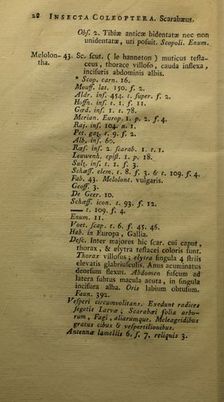 22 INSECTA COLEOPTERA. Scarabæus.
Obs. 2. Tibiæ anticæ bidentatæ nec non
unidentatæ, uti posuit. Scopoli. Enum.
Melolon- 43. Sc. scut. (le hanneton) muticus testa-
ceus, thorace villoso, cauda inflexa,
incisuris abdominis albis.
* Scop. carn. 16.
Mouff. lat. 150. f. 2.
Aldr. inf. 454. t. super. f. 2.
Hoffn. inf. t. 1. f. 11.
Gœd. inf. 1. t. 78.
Merian. Europ. 1. p. 2. f. 4.
Raj. inf. 104. n. 1.
Pet. gaz. t. 9. f. 2.
Alb. inf. 60.
Roes. inf. 2 scarab. 1. t. 1.
Leeuwenh. epist. 1. p. 18.
Sulz. inf. t. 1. f. 3.
Schæff. elem. t. 8. f. 3. & t. 109. f. 4.
Fab. 43. Melolont. vulgaris.
Geoff. 3.
De Geer. 10.
Schæff. icon. t. 93. f. 12.
t. 109. f. 4.
Enum. 11.
Voet. scap. t. 6. f. 45. 46.
Hab. in Europa, Gallia.
Desc. Inter majores hic scar. cui caput,
thorax, & elytra testacei coloris sunt.
Thorax villosus; elytra singula 4 striis
elevatis glabriusculis. Anus acuminatus
deorsum flexus. Abdomen fuscum ad
latera subtus macula acuta, in singula
incisura alba. Oris labium obtusum.
Faun. 392.
Vesperi circumvolitans. Exedunt radices
segetis Larvæ; Scarabæi folia arbo-
rum, Fagi, aliarumque. Meleagridibus
gratus cibus & vespertilionibus.
Antennæ lamellis 6. f. 7. reliquis 3.